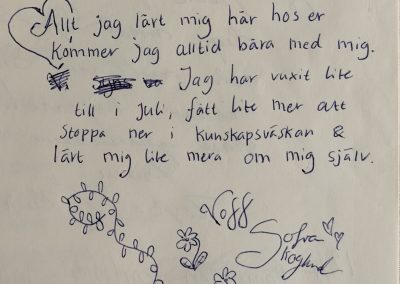 Allt jag lärt mig här hos er
kommer jag alltid bära med mig.
Jag har vuxit lite
till i Juli, fått lite mer att
stoppa ner i kunskapsväskan &
lärt mig lite mera om mig själv.
Voff
Sofia
Skoglund